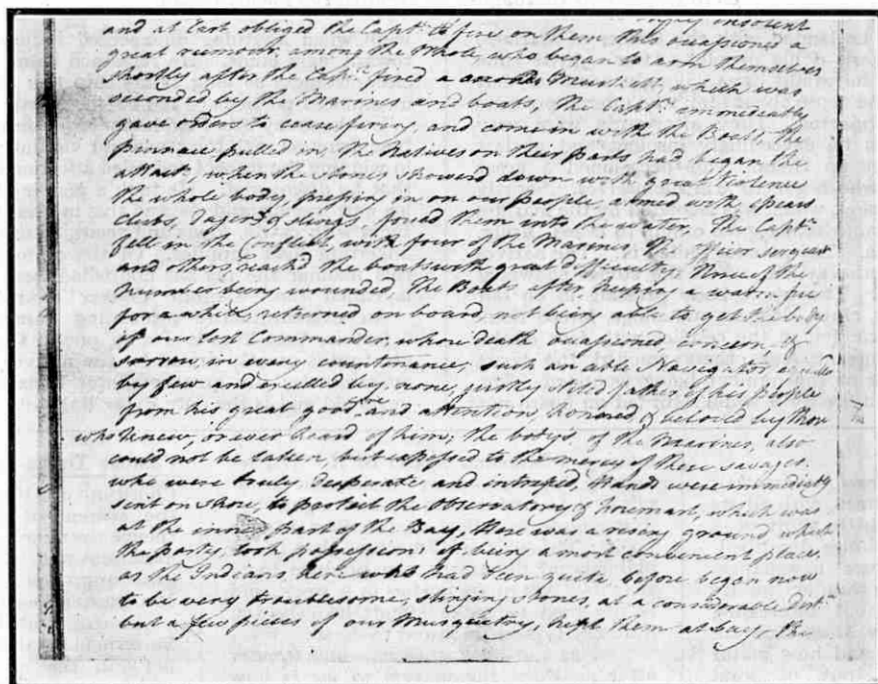 insolent
and at last obliged the Capt:ⁿ to fire on them, this occasioned a
great rumour among the whole who began to arm themselves
shortly after the Capt:ⁿ fired a Muskett, which was
seconded by the Marines and boats, the Capt:ⁿ immediately
gave orders to cease fireing, and come in with the Boats. The
pinnace pulled in. The Natives on their parts had began the
attack, when the Stones showerd down with great Violence
the whole body, pressing in on our people, armed with spears
clubs, dagers & slings, forced them into the water, The Capt:ⁿ
fell in the Conflict, with four of the Marines, The officer, sergeant
and others reach'd the boats with great difficulty. Nine of the
Number being wounded. The Boats after keeping a warm fire
for a while, returned on board, not being able to get the body
of our lost Commander, whose death occasioned concern &
sorrow, in every countenance, such an able Navigator equalled
by few and excelled by none, justly stiled father of his people
from his great good and attention, honored & beloved by those
who knew, or ever heard of him; the body's of the Marines, also
could not be taken but exposed to the mercy of these savages.
who were truly desperate and intrepid. Hands were immediately
sent on shore, to protect the Observatory & foremast, which was
at the part of the Bay, Here was a rising ground, which
the party, took possession of being a most convenient place,
as the Indians here who had been quite, before began now
to be very troublesome, slinging stones, at a considerable dist:
but a few pieces of our Musquetry, kept them at bay, The